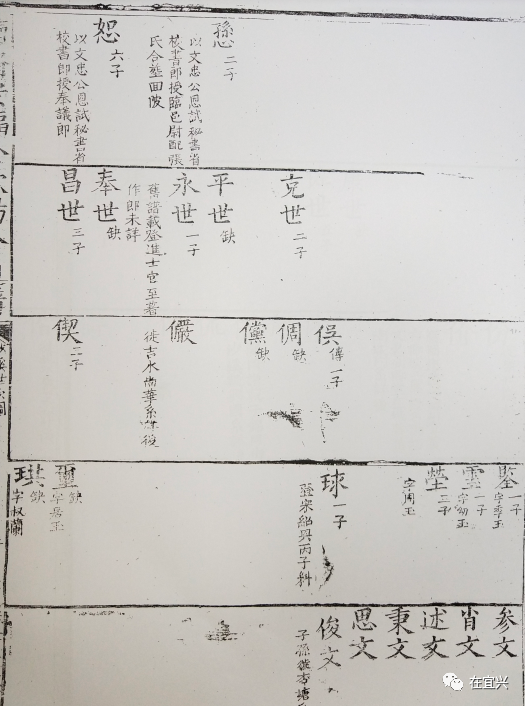 孫心 二子
以文忠公恩試秘書省
校書郎授臨邑尉配張
氏合塟回陂
恕 六子
以文忠公恩試秘書省
校書郎授奉議郎
克世 二子
平世 缺
永世 一子
舊譜載登進士官至著
作郎未詳
奉世 缺
昌世 三子
俁 傳一子
倜 缺
儻 缺
儼
徙吉水
偰 二子
鑒 一子
字季玉
一子
字幼玉
瑩 三子
字周玉
球 一子
登宋紹興丙子科
璽 缺
珙 缺
字叔蘭
参文
肖文
述文
秉文
思文
俊文
子孫
在宜兴